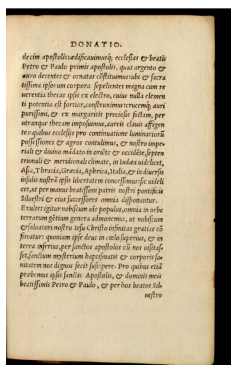 DONATIO.
decim apostolis: ædificauimusq́; ecclesias & beatis
Petro & Paulo primis apostolis, quas argento &
auro decentes & ornatas cõstituimus: ubi & sacra
tissima ipsorum corpora sepelientes magna cum re
uerentia thecas ipsis ex electro, cuius nulla elemen
ti potentia est fortior, construximus: crucemq́; auri
purissimi, & ex margaritis preciosis fictam, per
utranque thecam imposuimus, aureis clauis affigen
tes: quibus ecclesiis pro continuatione luminariorũ
possessiones & agros contulimus, & nostro impe-
riali & diuino mãdato in oriẽte & occidẽte, septen
trionali & meridionali climate, in Iudæa uidelicet,
Asia, Thracia, Græcia, Aphrica, Italia, & in diuersis
insulis nostrã ipsis libertatem concessimus: sic uideli
cet, ut per manus beatissimi patris nostri pontificis
Siluestri & eius successores omnia disponantur.
Exultet igitur nobiscum oĩs populus, omnia in orbe
terrarum gẽtium genera admonemus, ut nobiscum
& saluatori nostro Iesu Christo infinitas gratias cõ
fiteatur: quoniam ipse deus in cœlo superius, & in
terra inferius, per sanctos apostolos cũ nos uisitas-
set, sanctum mysterium baptismatis & corporis sa-
nitatem nos dignos fecit suscipere. Pro quibus etiã
præbemus ipsis sanctis Apostolis, & dominis meis
beatissimis Petro & Paulo, & per hos beatos Sil-
uestro